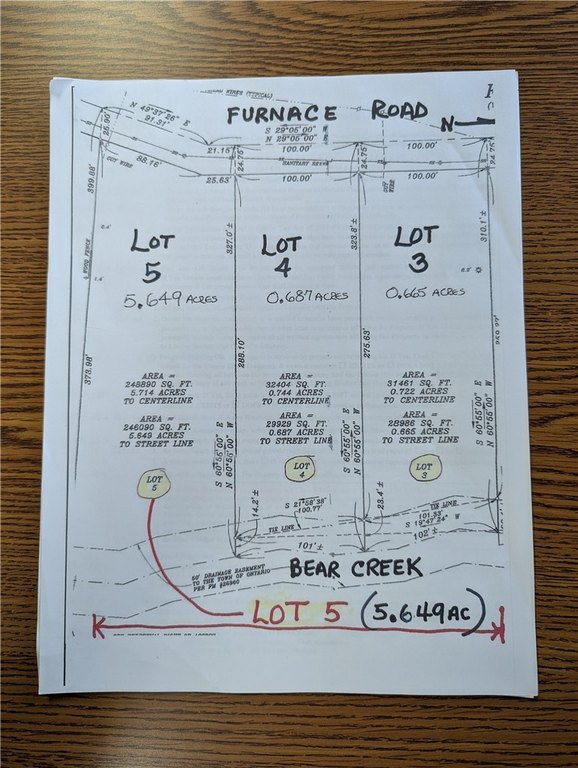 WIRES (TYPICAL)
FURNACE ROAD
N
N 49°37'26" E
91.31'
25.90'
S 29°05'00" W
N 29°05'00" E
21.15'
100.00'
100.00'
24.75'
24.75'
24.75'
SANITARY SEWER
GUY WIRE
88.16'
GUY WIRE
25.63'
100.00'
100.00'
399.88'
327.0' ±
323.8' ±
310.1' ±
LOT
5
5.649 ACRES
LOT
4
0.687 ACRES
LOT
3
0.665 ACRES
0.4'
WOOD FENCE
1.4'
373.98'
288.10'
275.63'
AREA =
248890 SQ. FT.
5.714 ACRES
TO CENTERLINE
AREA =
246090 SQ. FT.
5.649 ACRES
TO STREET LINE
AREA =
32404 SQ. FT.
0.744 ACRES
TO CENTERLINE
AREA =
29929 SQ. FT.
0.687 ACRES
TO STREET LINE
AREA =
31461 SQ. FT.
0.722 ACRES
TO CENTERLINE
AREA =
28986 SQ. FT.
0.665 ACRES
TO STREET LINE
S 60°55'00" E
N 60°55'00" W
S 60°55'00" E
N 60°55'00" W
S 60°55'00" E
N 60°55'00" W
LOT
5
LOT
4
LOT
3
14.2' ±
S 21°58'38"
100.77'
TIE LINE
23.4' ±
TIE LINE
101.83'
S 19°47'24" W
101' ±
102' ±
BEAR CREEK
50' DRAINAGE EASEMENT
TO THE TOWN OF ONTARIO
PER FM #26960
LOT 5 (5.649 AC)